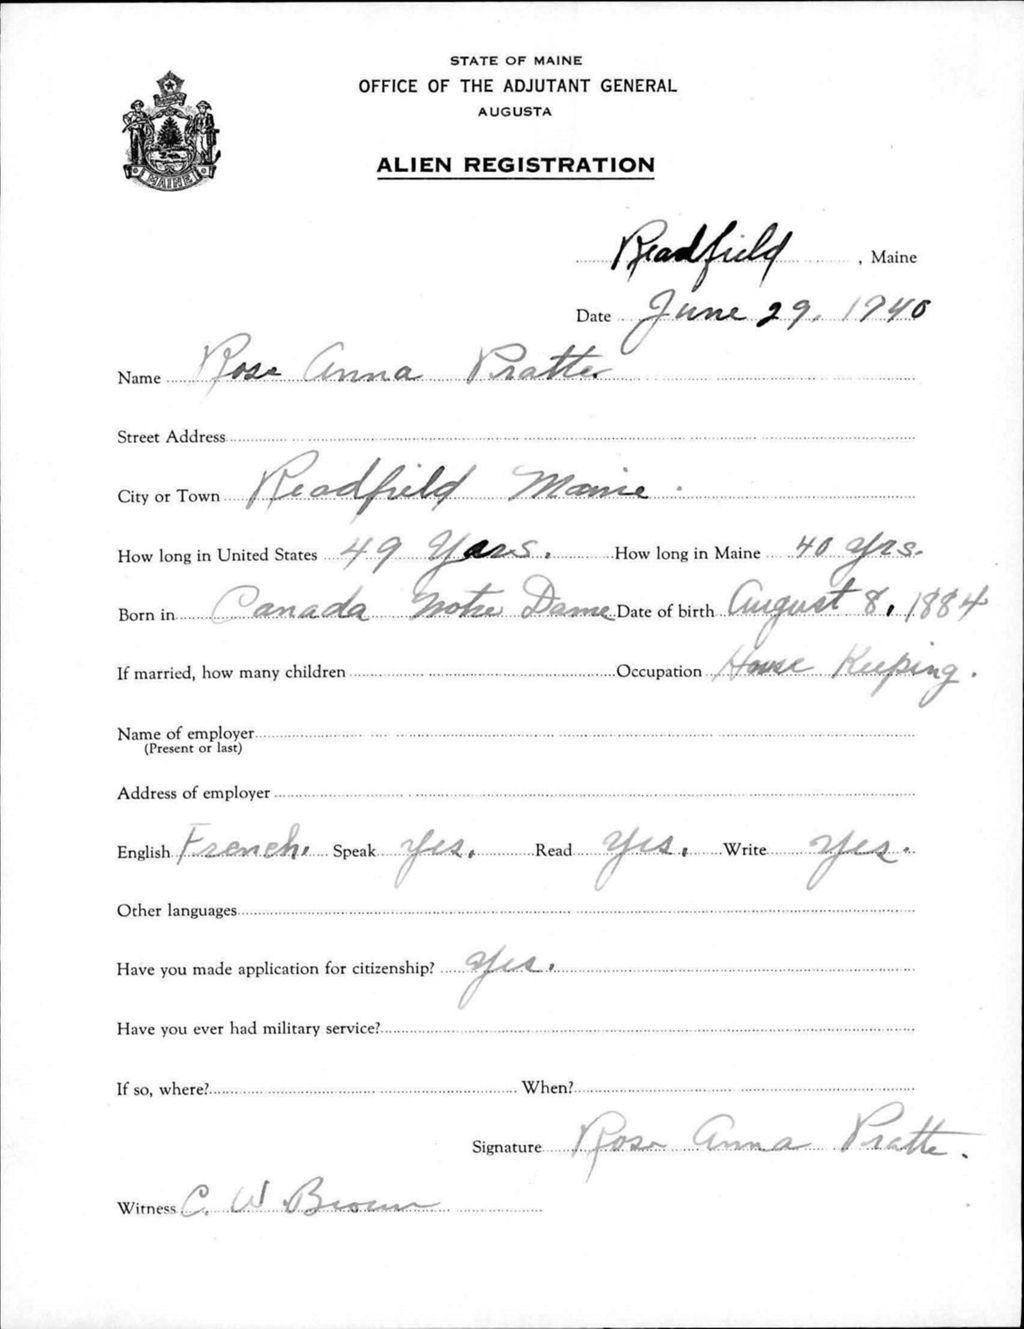 STATE OF MAINE
OFFICE OF THE ADJUTANT GENERAL
AUGUSTA
ALIEN REGISTRATION
MAINE
Readfield, Maine
Date June 29, 1940
Name Rose Anna Pratte
Street Address
City or Town Readfield Maine.
How long in United States 49 Years. How long in Maine 40 yrs.
Born in Canada Notre Dame Date of birth August 8, 1884
If married, how many children Occupation House Keeping.
Name of employer
(Present or last)
Address of employer
English French. Speak yes. Read Yes. Write Yes.
Other languages
Have you made application for citizenship? Yes.
Have you ever had military service?
If so, where? When?
Signature Rose Anna Pratte.
Witness C. W Brown